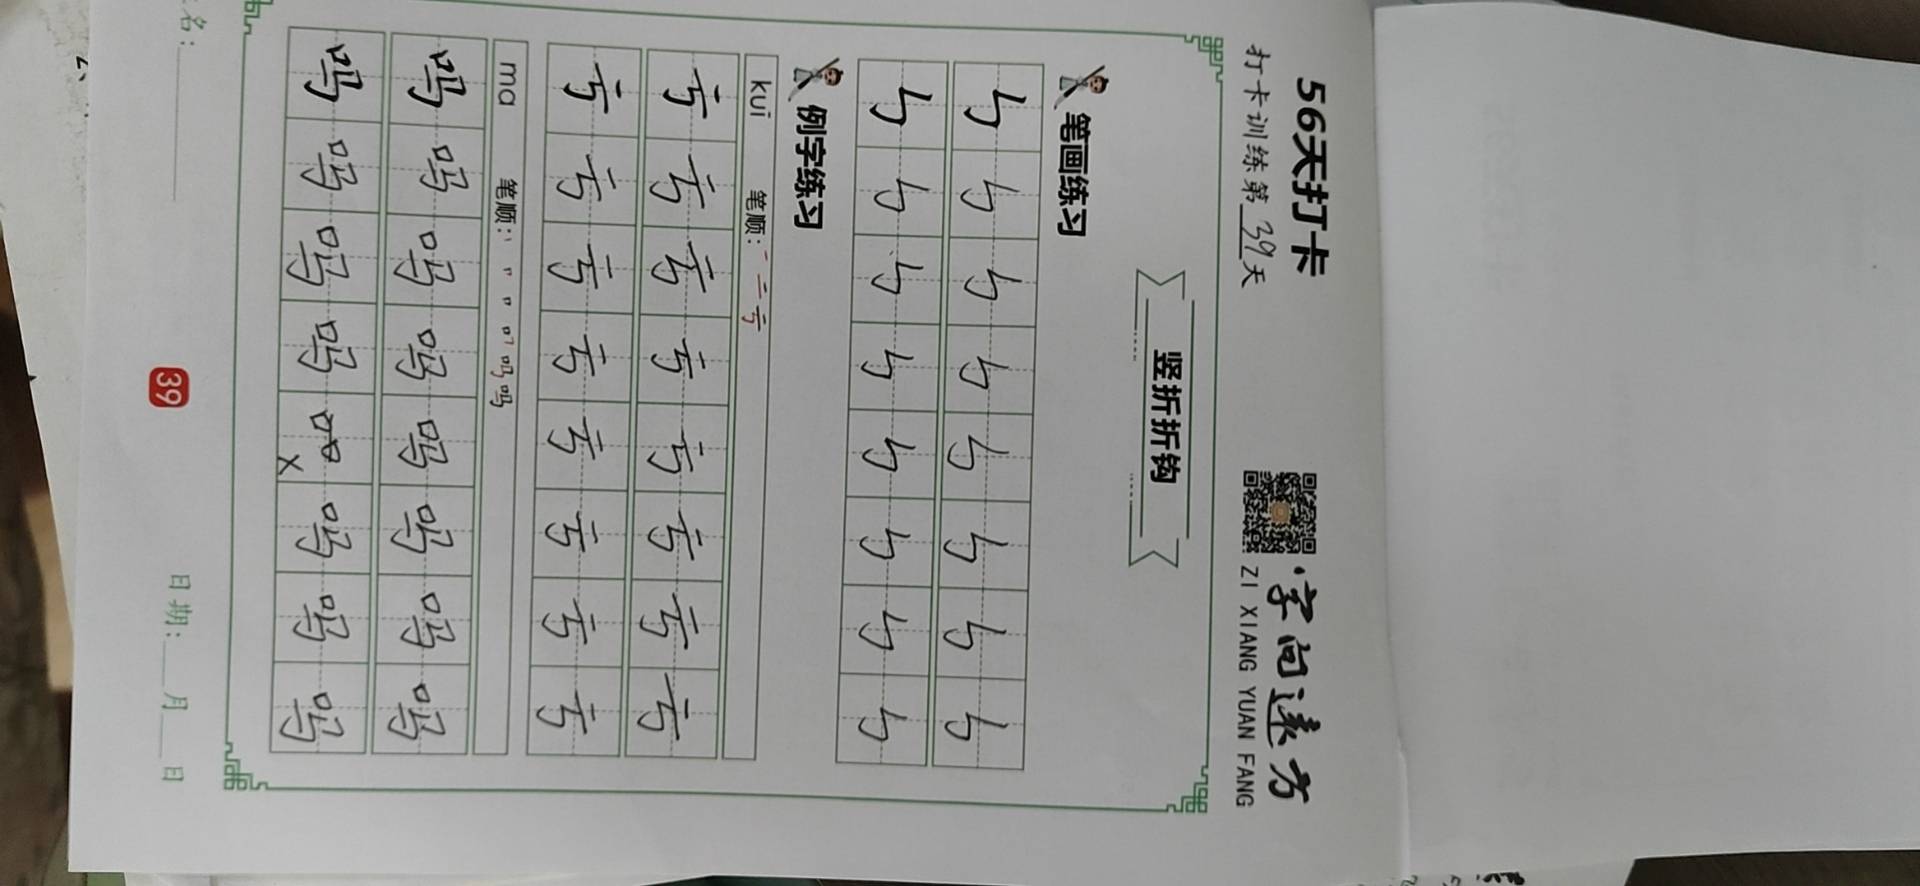 56天打卡
打卡训练第39天
·字向远方
ZI XIANG YUAN FANG
竖折折钩
笔画练习
ㄣ ㄣ ㄣ ㄣ ㄣ ㄣ ㄣ ㄣ
ㄣ ㄣ ㄣ ㄣ ㄣ ㄣ ㄣ ㄣ
例字练习
kuī 笔顺: 一 二 亏
亏 亏 亏 亏 亏 亏 亏 亏
亏 亏 亏 亏 亏 亏 亏 亏
ma 笔顺: 丨 口 吗 吗
吗 吗 吗 吗 吗 吗 吗 吗
吗 吗 吗 吗 x 吗 吗 吗
名:
39
日期: 月 日